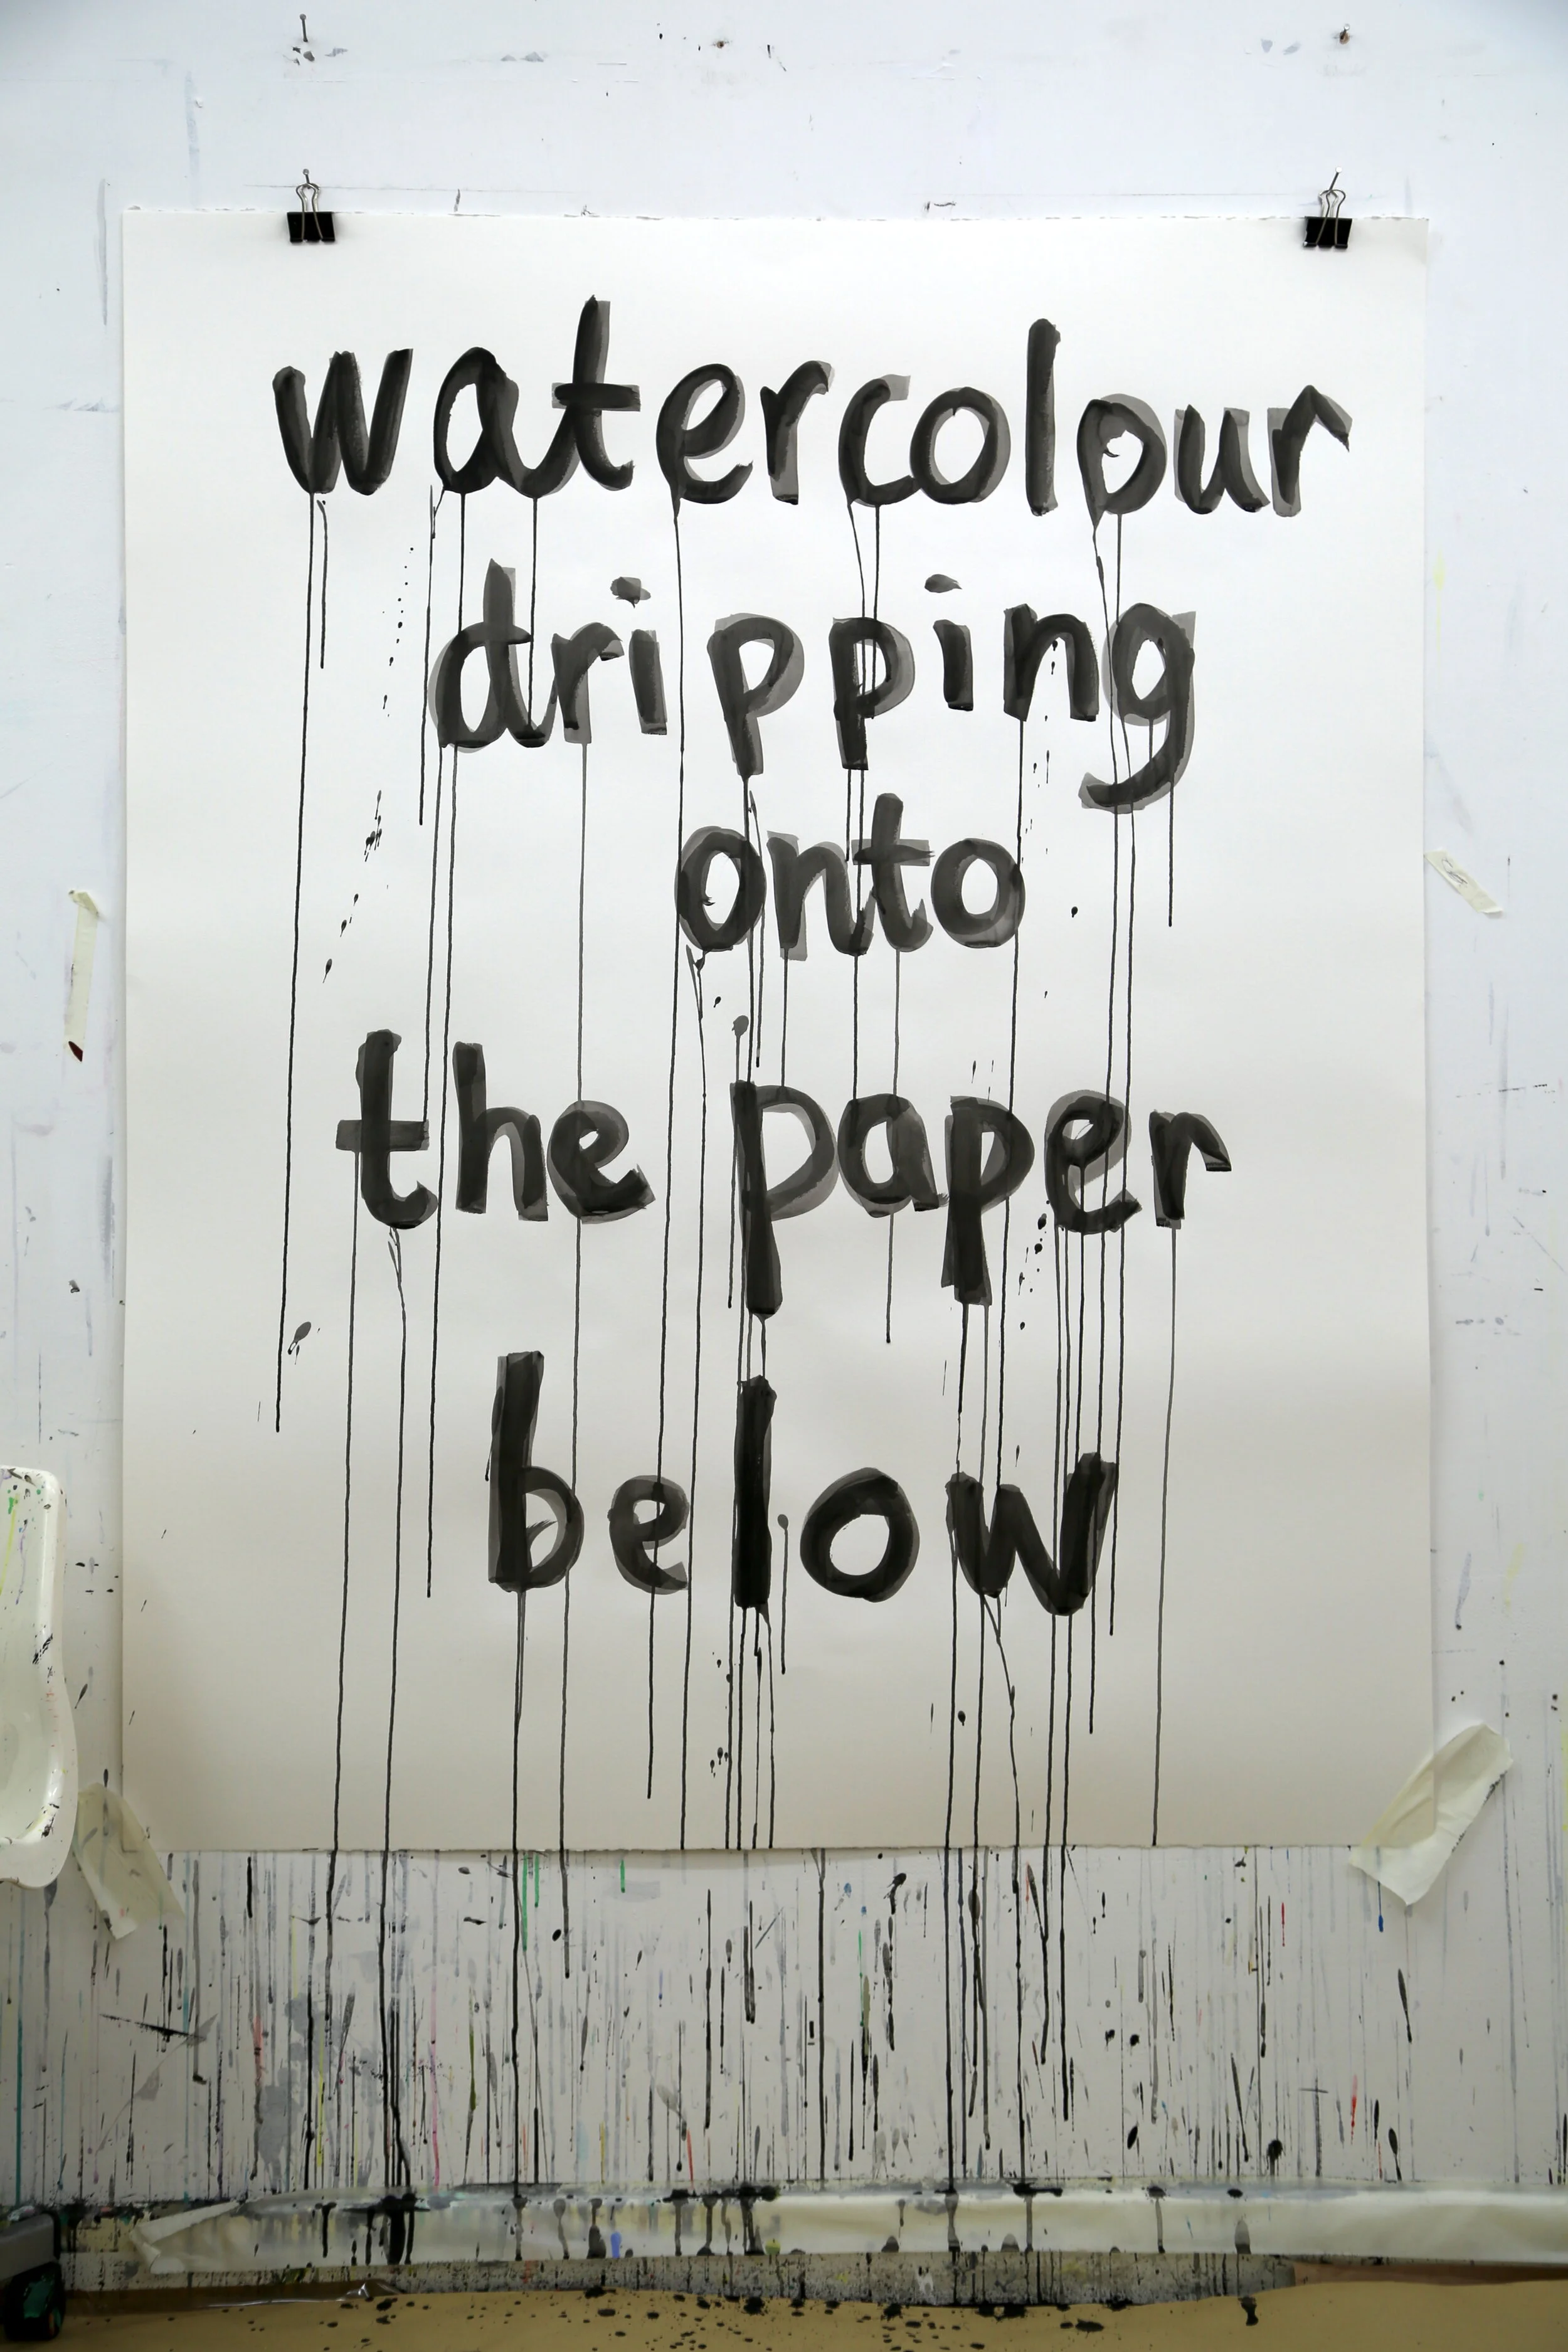 watercolour
dripping
onto
the paper
below